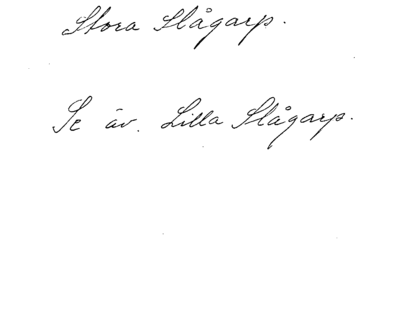 Stora Slågarp.
Se äv. Lilla Slågarp.